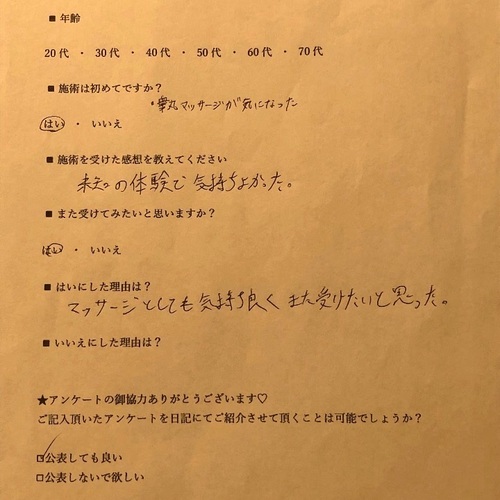 ■ 年齢
20代 ・ 30代 ・ 40代 ・ 50代 ・ 60代 ・ 70代
■ 施術は初めてですか？
・睾丸マッサージが気になった
はい ・ いいえ
■ 施術を受けた感想を教えてください
未知の体験で気持ちよかった。
■ また受けてみたいと思いますか？
はい ・ いいえ
■ はいにした理由は？
マッサージとしても気持ち良くまた受けたいと思った。
■ いいえにした理由は？
★アンケートの御協力ありがとうございます♡
ご記入頂いたアンケートを日記にてご紹介させて頂くことは可能でしょうか？
☑公表しても良い
□公表しないで欲しい